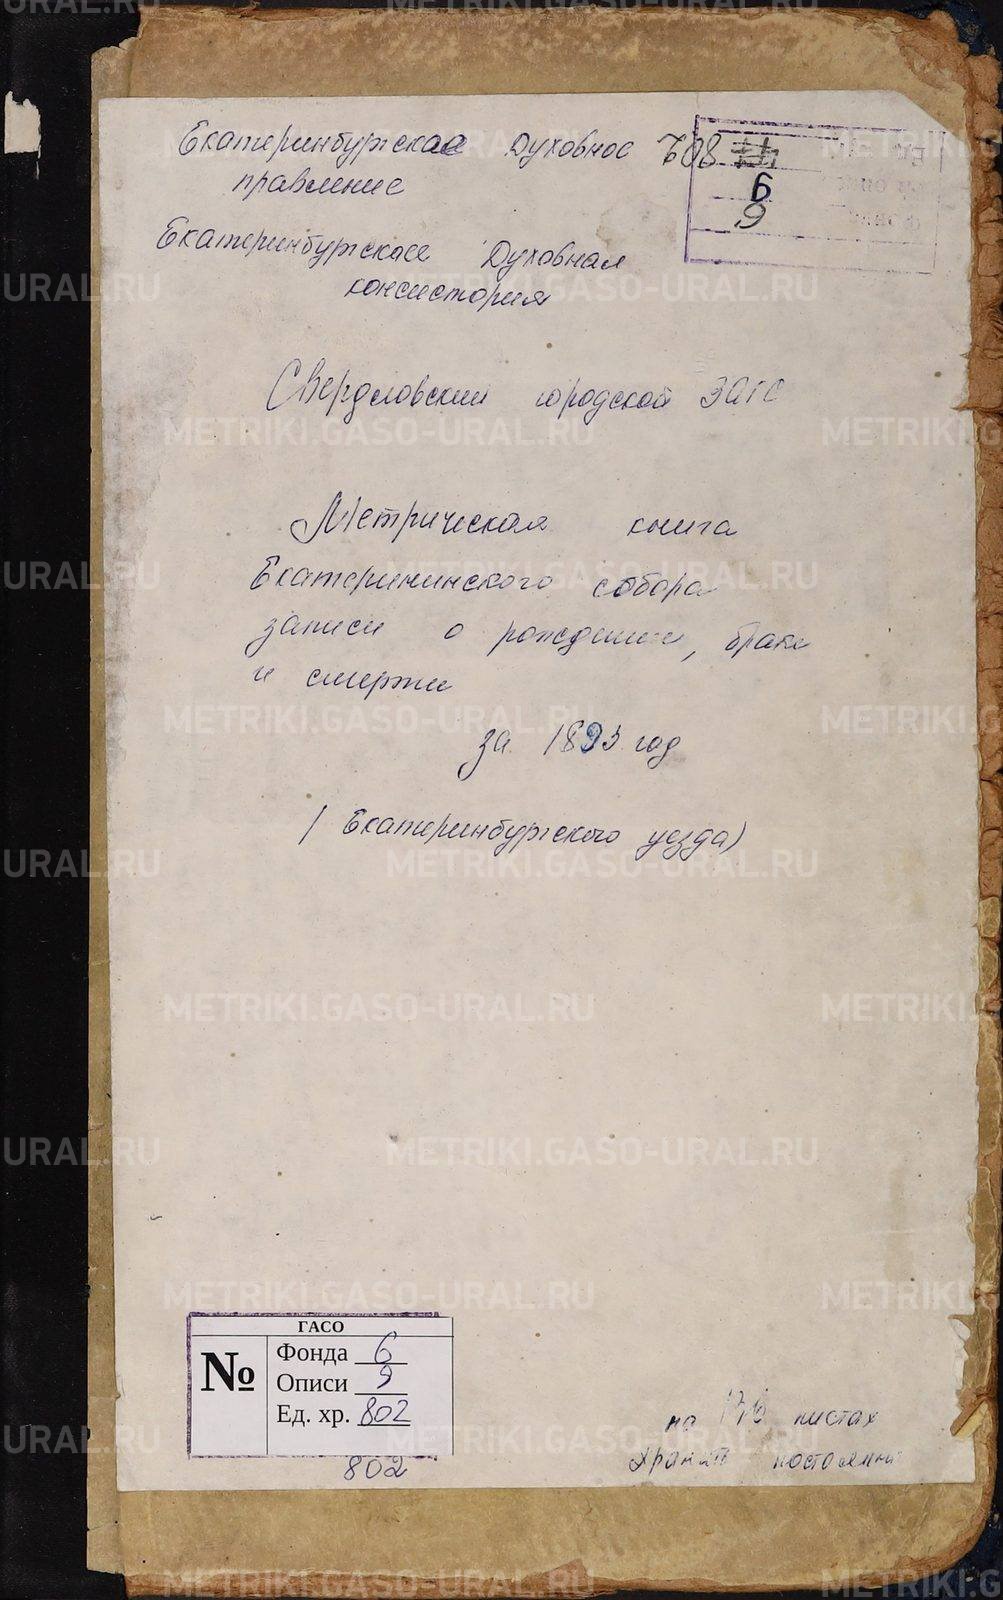 Екатеринбургское Духовное
правление
Екатеринбургская Духовная
консистория
802
6
9
Свердловский городской ЗАГС
Метрическая книга
Екатерининского собора
записи о рождении, браке
и смерти
за 1893 год
(Екатеринбургского уезда)
ГАСО
№
Фонда 6
Описи 9
Ед. хр. 802
802
на листах
хранить постоянно
METRIKI.GASO-URAL.RU